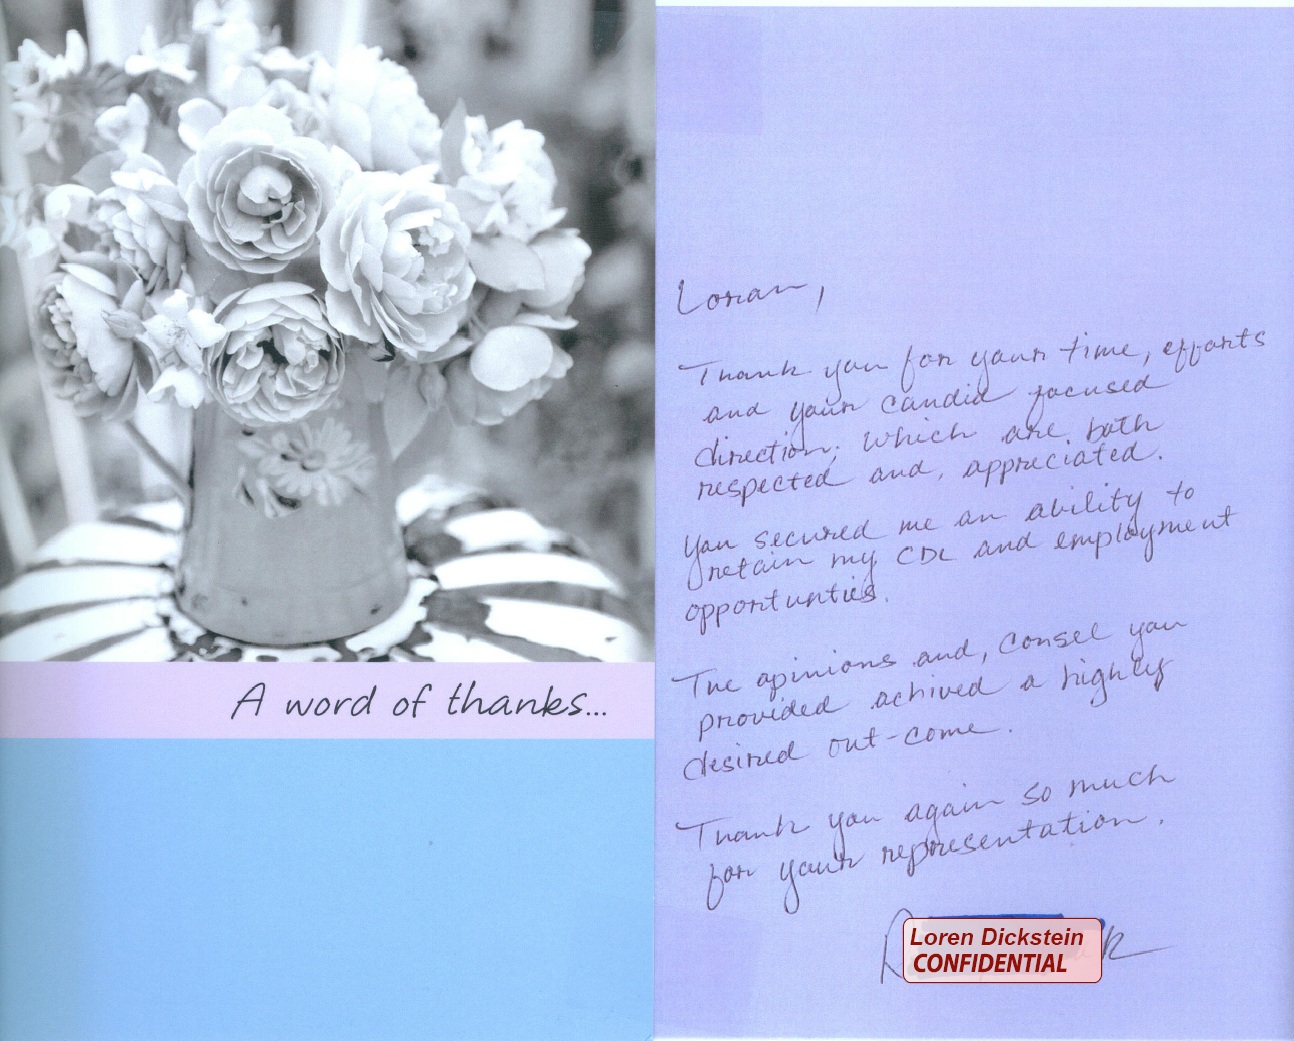 A word of thanks...
Loran,
Thank you for your time, efforts
and your candid focused
direction; which are both
respected and, appreciated.
You secured me an ability to
retain my CDL and employment
opportunties.
The opinions and, consel you
provided achived a highly
desired out-come.
Thank you again so much
for your representation.
Loren Dickstein
CONFIDENTIAL